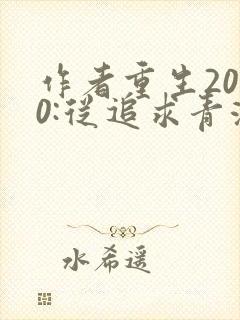 作者重生20
0:从追求青
水希遥